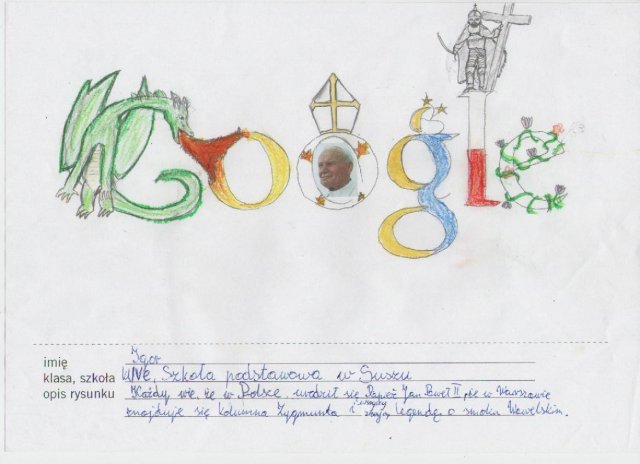 Google
imię Igor
klasa, szkoła IVe, Szkoła podstawowa w Suszu
opis rysunku Każdy wie, że w Polsce urodził się Papież Jan Paweł II, że w Warszawie
znajduje się kolumna Zygmunta i wszyscy znają legendę o smoku Wawelskim.